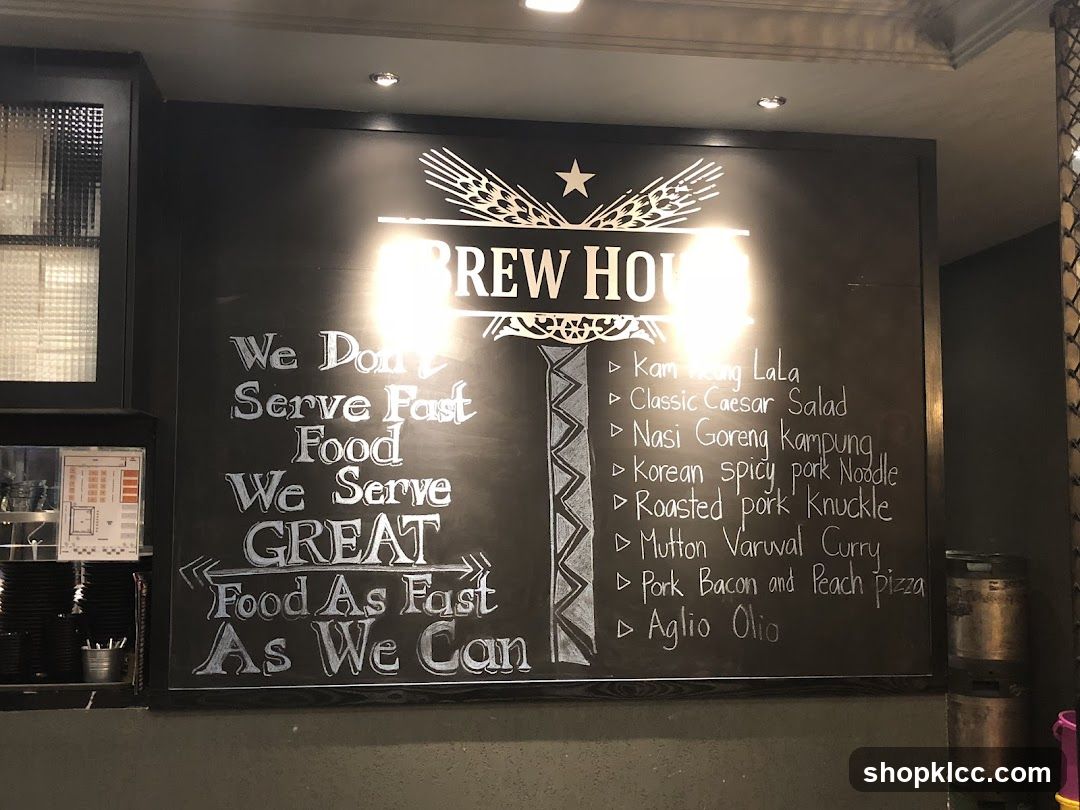 BREW HOUSE
We Don't
Serve Fast
Food
We Serve
GREAT
Food As Fast
As We Can
Kam Heung LaLa
Classic Caesar Salad
Nasi Goreng Kampung
Korean spicy pork Noodle
Roasted pork Knuckle
Mutton Varuval Curry
Pork Bacon and Peach pizza
Aglio Olio
shopklcc.com